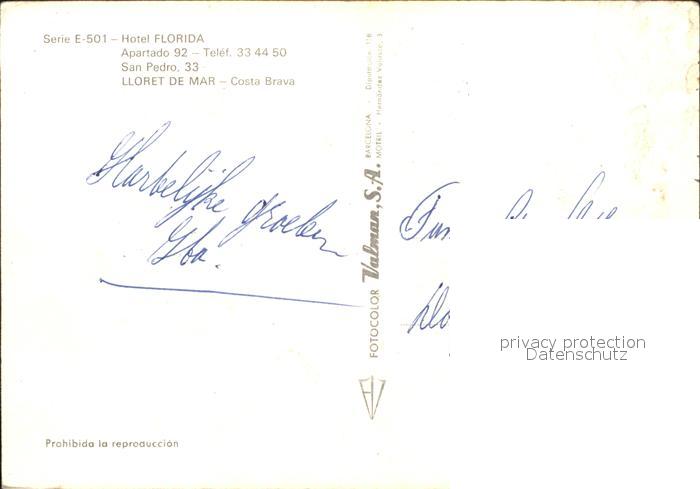 Serie E-501 – Hotel FLORIDA
Apartado 92 – Teléf. 33 44 50
San Pedro, 33
LLORET DE MAR – Costa Brava
Hartelijke groeten
FOTOCOLOR Valman, S.A. BARCELONA - Diputación, 118
MOTRIL - Hernández Velasco, 3
privacy protection
Datenschutz
Prohibida la reproducción